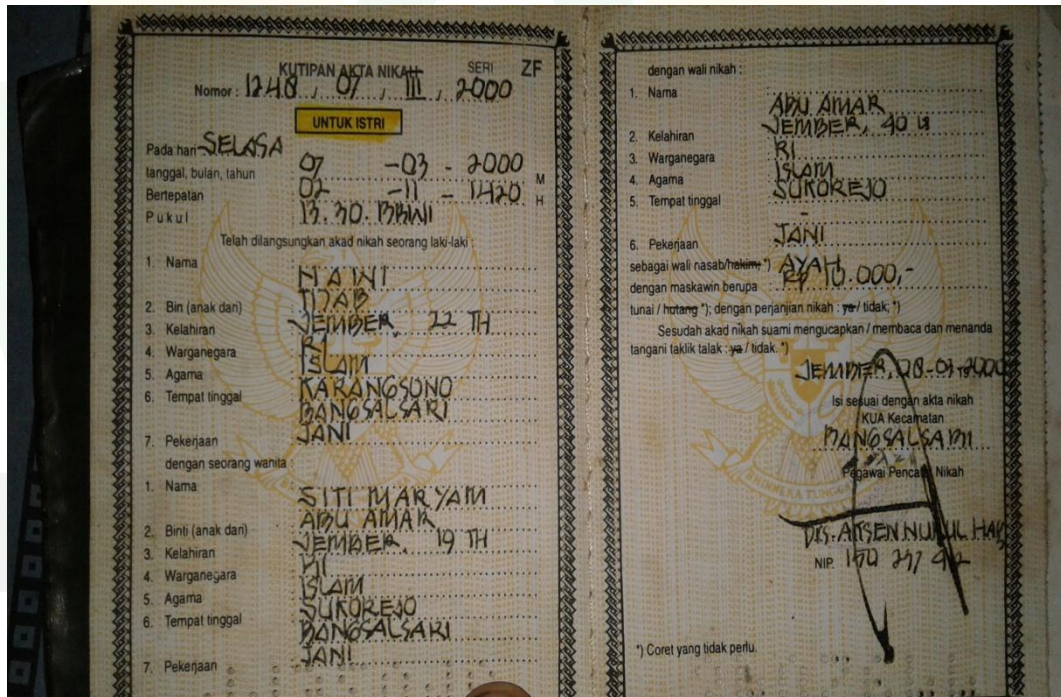 KUTIPAN AKTA NIKAH SERI ZF
Nomor : 1248 / 07 / III / 2000
UNTUK ISTRI
Pada hari SELASA
tanggal, bulan, tahun 07 -03 - 2000 M
Bertepatan 02 -11 - 1420 H
Pukul 13.30. BBWI
Telah dilangsungkan akad nikah seorang laki-laki :
1. Nama HAINI
2. Bin (anak dari) TIJAB
3. Kelahiran JEMBER, 22 TH
4. Warganegara RI
5. Agama ISLAM
6. Tempat tinggal KARANGSONO
BANGSALSARI
7. Pekerjaan TANI
dengan seorang wanita :
1. Nama SITI MARYAM
2. Binti (anak dari) ABU AMAR
3. Kelahiran JEMBER, 19 TH
4. Warganegara RI
5. Agama ISLAM
6. Tempat tinggal SUKOREJO
BANGSALSARI
7. Pekerjaan TANI
dengan wali nikah :
1. Nama ABU AMAR
2. Kelahiran JEMBER, 40
3. Warganegara RI
4. Agama ISLAM
5. Tempat tinggal SUKOREJO
-
6. Pekerjaan TANI
sebagai wali nasab/hakim; *) AYAH
dengan maskawin berupa Rp 10.000,-
tunai / hutang *); dengan perjanjian nikah : ya / tidak; *)
Sesudah akad nikah suami mengucapkan / membaca dan menanda
tangani taklik talak : ya / tidak. *)
JEMBER, 08-03-2000
Isi sesuai dengan akta nikah
KUA Kecamatan
BANGSALSARI
Pegawai Pencatat Nikah
BHINNEKA TUNGGAL
NIP. 150
*) Coret yang tidak perlu.